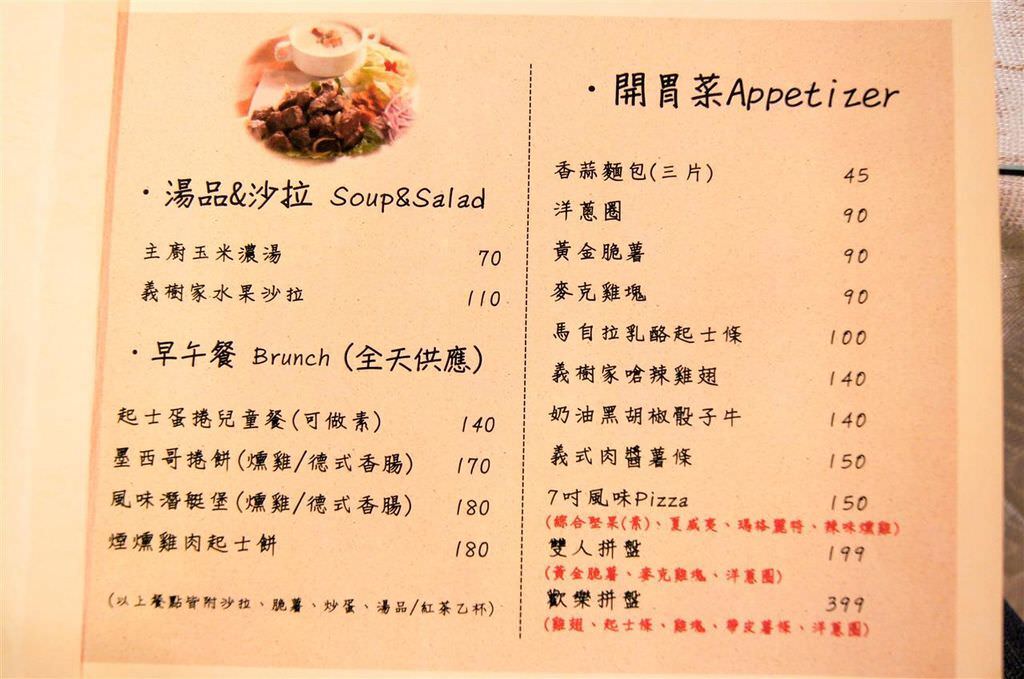 ·湯品&沙拉 Soup&Salad
主廚玉米濃湯 70
義樹家水果沙拉 110
·早午餐 Brunch (全天供應)
起士蛋捲兒童餐(可做素) 140
墨西哥捲餅(燻雞/德式香腸) 170
風味潛艇堡(燻雞/德式香腸) 180
煙燻雞肉起士餅 180
(以上餐點皆附沙拉、脆薯、炒蛋、湯品/紅茶乙杯)
·開胃菜Appetizer
香蒜麵包(三片) 45
洋蔥圈 90
黃金脆薯 90
麥克雞塊 90
馬自拉乳酪起士條 100
義樹家嗆辣雞翅 140
奶油黑胡椒骰子牛 140
義式肉醬薯條 150
7吋風味Pizza 150
(綜合堅果(素)、夏威夷、瑪格麗特、辣味燻雞)
雙人拼盤 199
(黃金脆薯、麥克雞塊、洋蔥圈)
歡樂拼盤 399
(雞翅、起士條、雞塊、帶皮薯條、洋蔥圈)